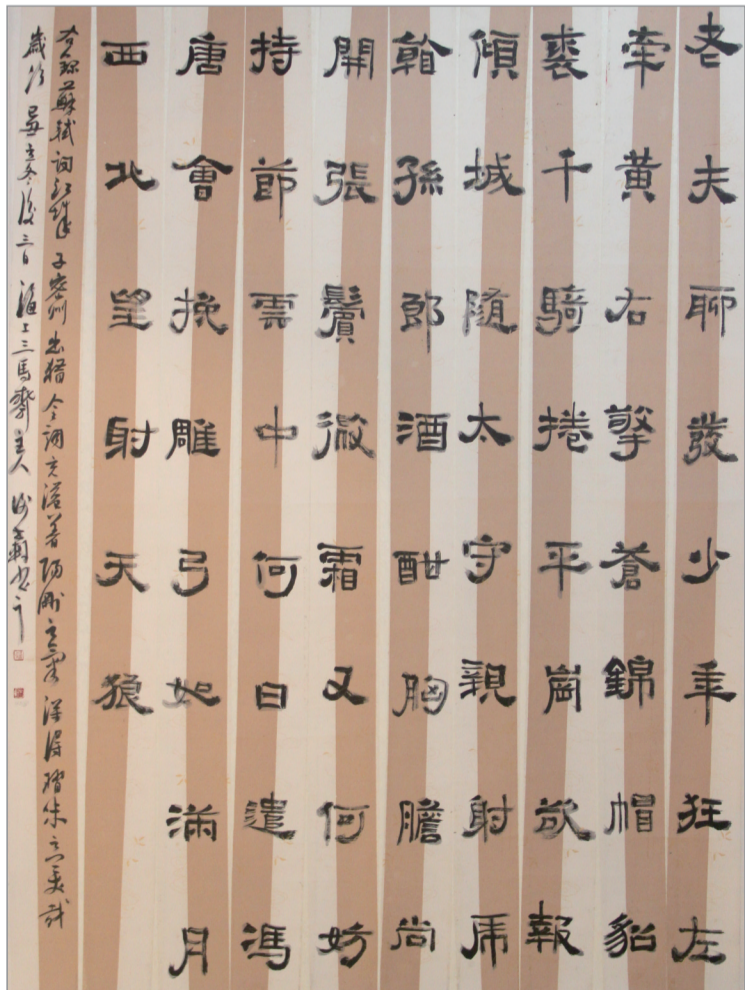 老夫聊發少年狂左
牽黃右擎蒼錦帽貂
裘千騎捲平崗欲報
傾城隨太守親射虎
看孫郎酒酣胸膽尚
開張鬢微霜又何妨
持節雲中何日遣馮
唐會挽雕弓如滿月
西北望射天狼
右錄蘇軾詞江城子密州出獵今誦之溢著陽剛之氣深得美哉
歲次立冬後三日海上三馬齋主人